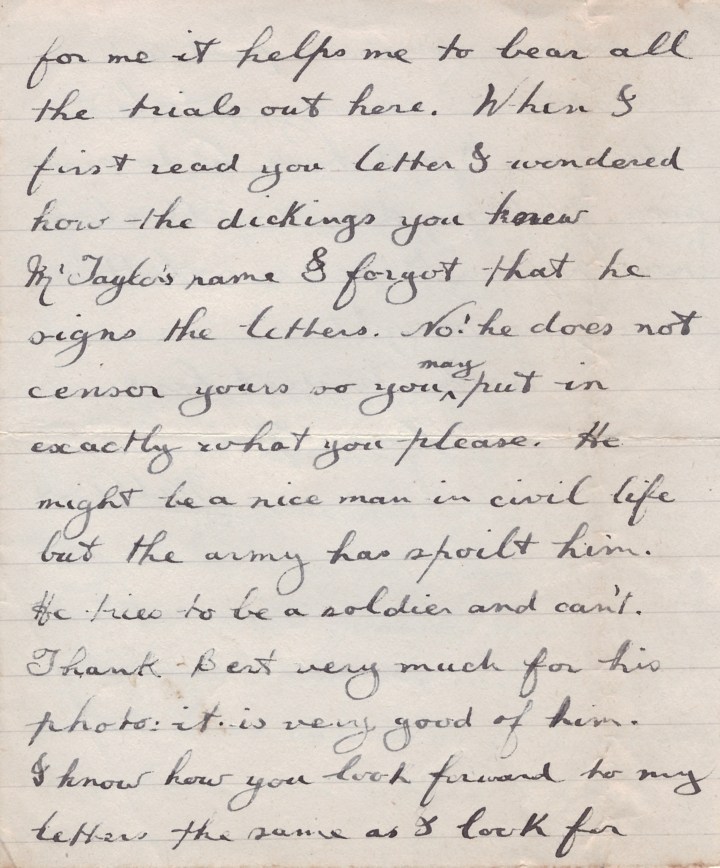 for me it helps me to bear all
the trials out here. When I
first read you letter I wondered
how the dickings you knew
Mr Taylor's name I forgot that he
signs the letters. No! he does not
censor yours so you may put in
exactly what you please. He
might be a nice man in civil life
but the army has spoilt him.
He tries to be a soldier and can't.
Thank Bert very much for his
photo: it is very good of him.
I know how you look forward to my
letters the same as I look for